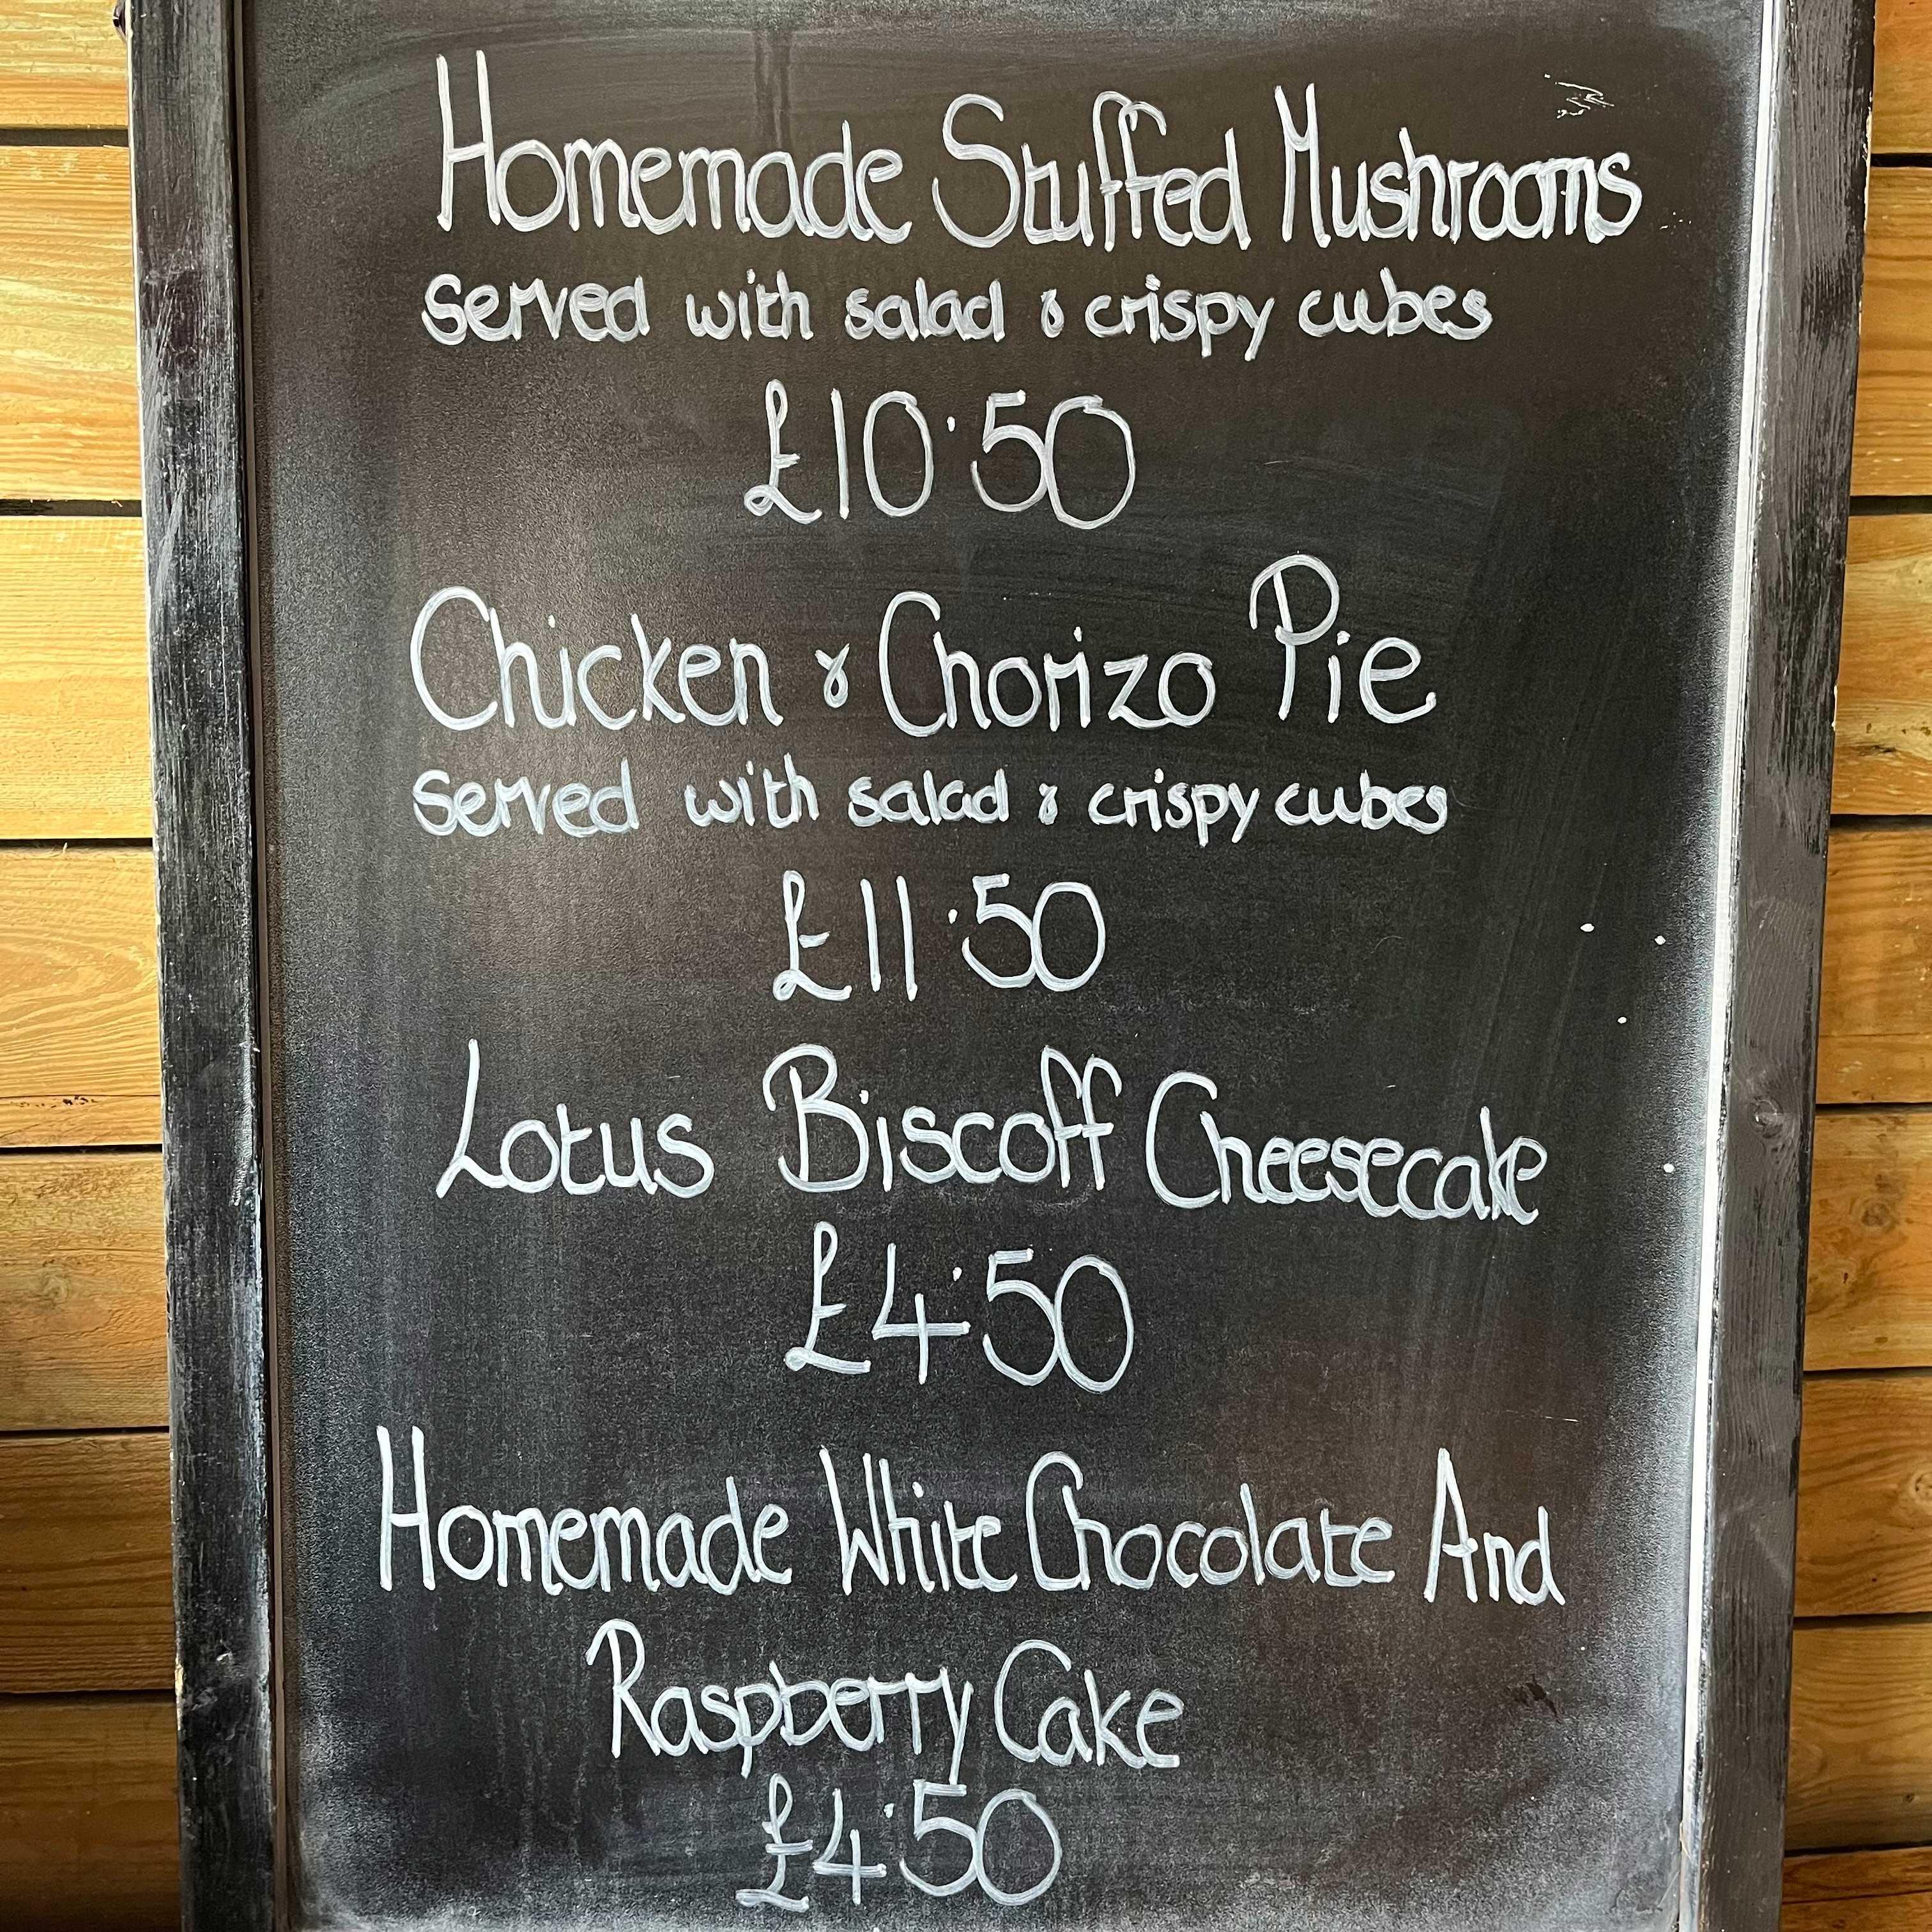 Homemade Stuffed Mushrooms
served with salad & crispy cubes
£10.50
Chicken & Chorizo Pie
served with salad & crispy cubes
£11.50
Lotus Biscoff Cheesecake
£4.50
Homemade White Chocolate And
Raspberry Cake
£4.50